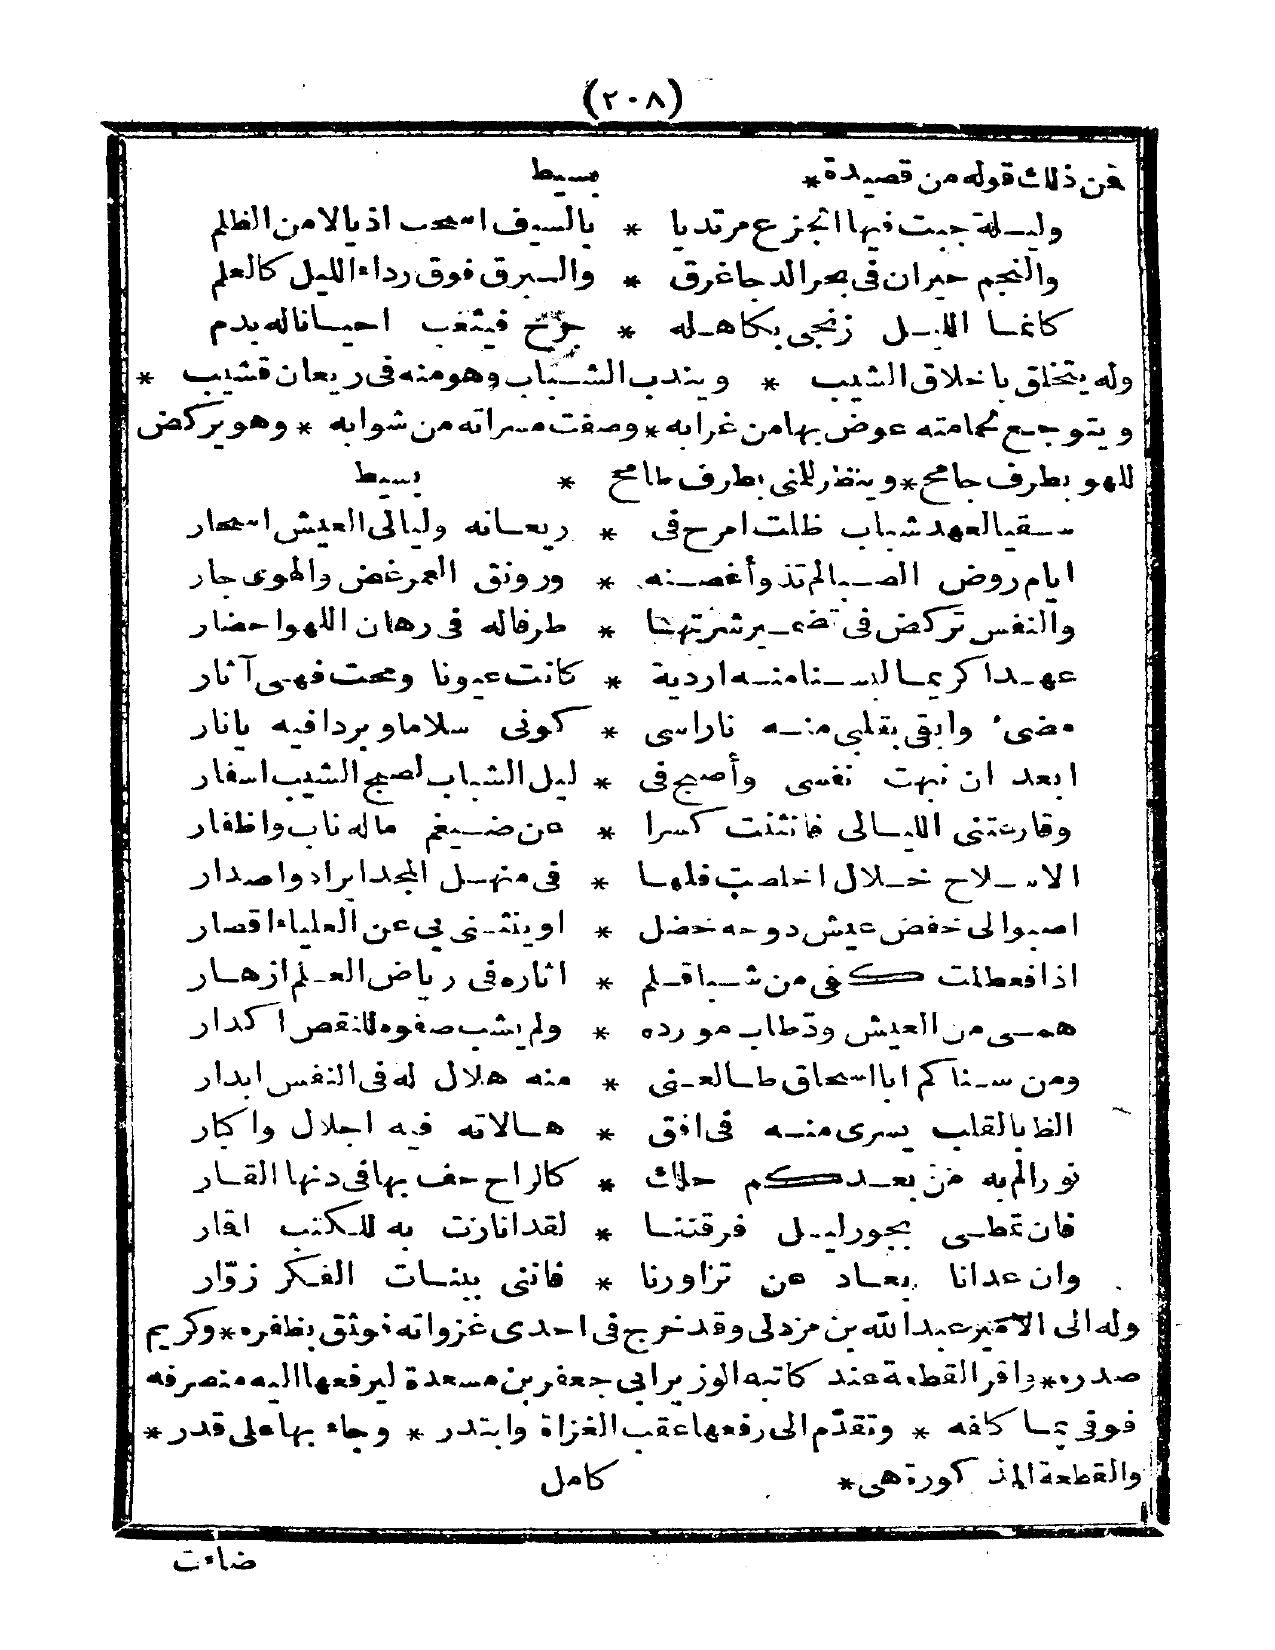 (٢٠٨)
فمن ذلك قوله من قصيدة * بسيط
وليلة جبت فيها الجزع مرتديا * بالسيف اسحب اذيالا من الظلم
والنجم حيران فى بحر الدجا غرق * والبرق فوق رداء الليل كالعلم
كانما الليل زنجى بكاهله * جرح فيثعب احيانا له بدم
وله يتخلق باخلاق الشيب * ويندب الشباب وهو منه فى ريعان قشيب *
ويتوجع لحمامته عوض بها من غرابه * وصفت مسراته من شوابه * وهو يركض
للهو بطرف جامح * وينظر للمنى بطرف طامح * بسيط
سقيا لعهد شباب ظلت امرح فى * ريعانه وليالى العيش اسحار
ايام روض الصبا لم تذو أغصنه * ورونق العمر غض والهوى جار
والنفس تركض فى تضمير شرتها * طرفا له فى رهان اللهو احضار
عهدا كريما لبسنا منه اردية * كانت عيونا ومحت فهى آثار
مضى وابقى بقلبى منه نار اسى * كونى سلاما وبردا فيه يا نار
ابعد ان نبهت نفسى وأصبح فى * ليل الشباب لصبح الشيب اسفار
وقارعتنى الليالى فانثنت كسرا * عن ضيغم ماله ناب واظفار
الا سلاح خلال اخلصت فلها * فى منهل المجد ايراد واصدار
اصبوا الى خفض عيش دوحه خضل * او ينثنى بى عن العلياء اقصار
اذا فعطلت كفى من شبا قلم * اثاره فى رياض العلم ازهار
همى من العيش ود طاب مورده * ولم يشب صفوه للنقص اكدار
ومن سناكم ابا اسحاق طالعنى * منه هلال له فى النفس ابدار
الظ بالقلب يسرى منه فى افق * هالاته فيه اجلال واكبار
نور الم به من بعدكم حلك * كالراح حف بها فى دنها القار
فان غطى بجور ليل فرقتنا * لقد انارت به للكتب اقار
وان عدانا بعاد عن تزاورنا * فاننى ببنات الفكر زوّار
وله الى الامير عبد الله بن مزدلى وقد خرج فى احدى غزواته فوثق بظفره * وكريم
صدره * واقر القطعة عند كاتبه الوزير ابى جعفر بن مسعدة ليرفعها اليه منصرفه
فوفى بما كافه * وتقدّم الى رفعها عقب الغزاة وابتدر * وجاء بها على قدر *
والقطعة المذكورة هى * كامل
ضاءت